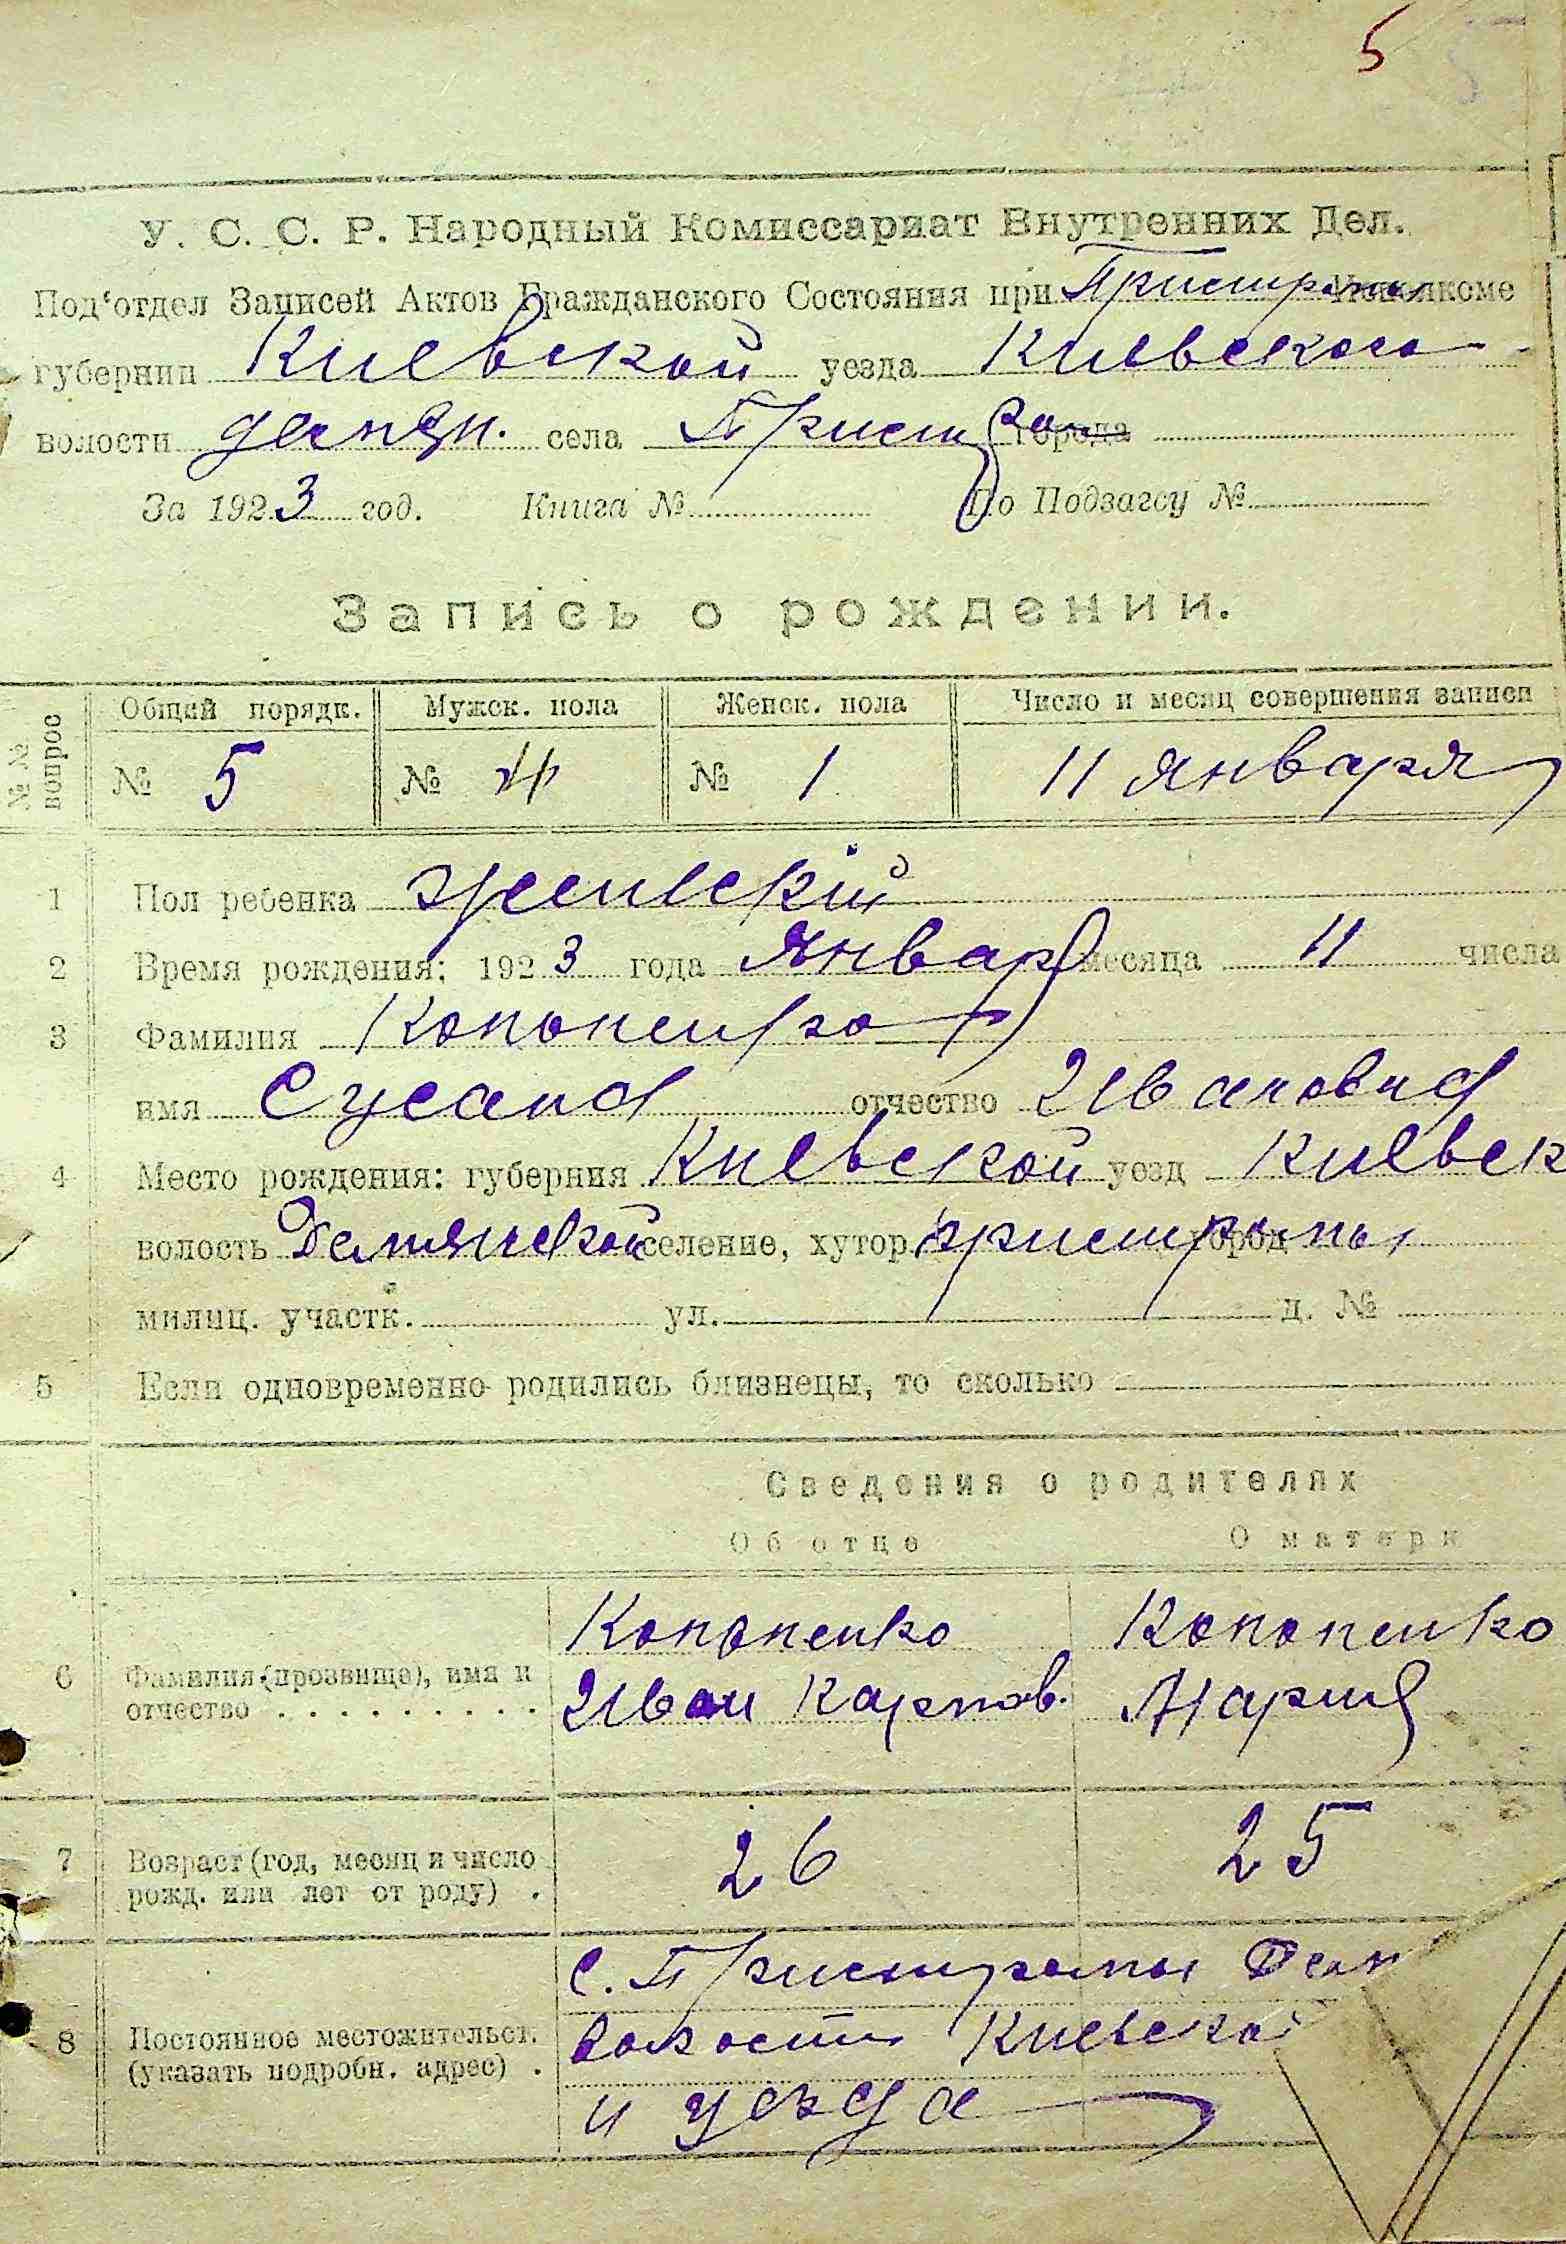 5
У. С. С. Р. Народный Комиссариат Внутренних Дел.
Под‘отдел Записей Актов Гражданского Состояния при Пристром Исполкоме
губернии Киевской уезда Киевского
волости демян. села Пристром города
За 1923 год. Книга № По Подзагсу №
Запись о рождении.
№№ вопрос
Общий порядк. Мужск. пола Женск. пола Число и месяц совершения записи
№ 5 № 4 № 1 11 января
1 Пол ребенка женскій
2 Время рождения: 1923 года Январ месяца 11 числа
3 Фамилия Кононенко
имя Сусана отчество Ивановна
4 Место рождения: губерния Киевской уезд Киевск
волость Демянской селение, хутор. Пристромы город
милиц. участк. ул. д. №
5 Если одновременно родились близнецы, то сколько
Сведения о родителях
Об отце О матери
Кононенко Кононенко
6 Фамилия (прозвище), имя и Иван Карпов. Мария
отчество
7 Возраст (год, месяц и число 26 25
рожд. или лет от роду) .
с. Пристромы Дем
8 Постоянное местожительст. волости Киевской
(указать подробн. адрес) .
и уезда